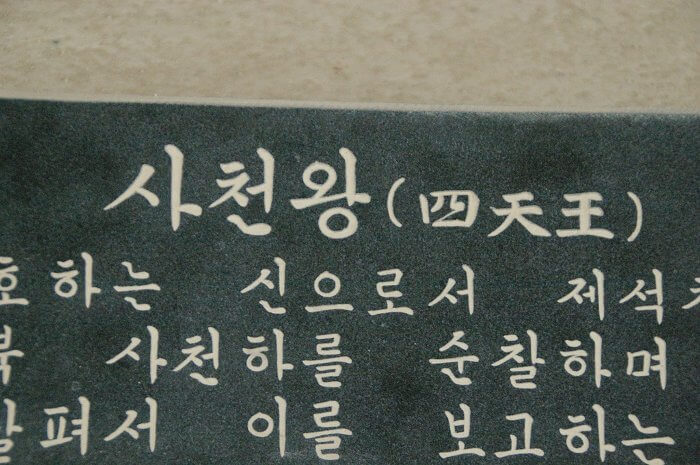 사천왕(四天王)
호하는 신으로서 제석
북 사천하를 순찰하며
살펴서 이를 보고하는